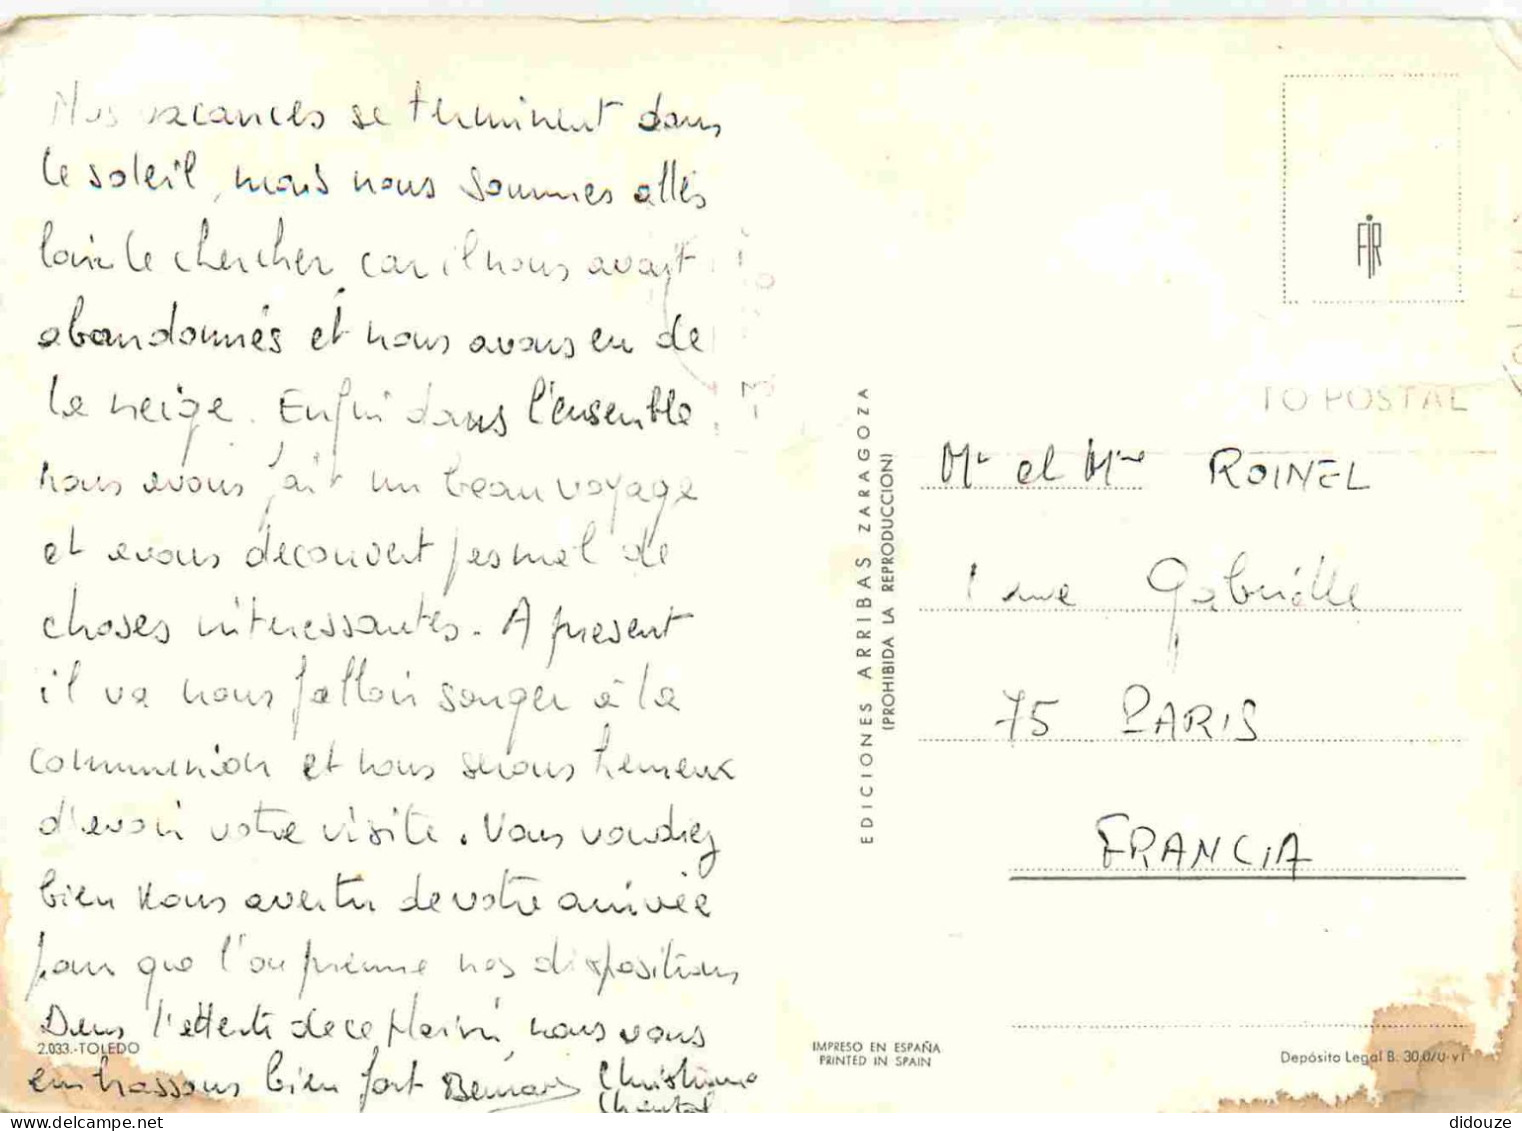 Nos vacances se terminent dans
le soleil, mais nous sommes allés
loin le chercher, car il nous avait
abandonnés et nous avons eu de
la neige. Enfin dans l'ensemble
nous avons fait un beau voyage
et avons decouvert pas mal de
choses interessantes. A present
il va nous falloir songer à la
communion et nous serons heureux
d'avoir votre visite. Vous voudrez
bien nous avertir de votre arrivée
pour que l'on prenne nos dispositions
Dans l'attente de ce plaisir nous vous
2.033.-TOLEDO
embrassons bien fort Bernard Christiane
Chantal
EDICIONES ARRIBAS ZARAGOZA
(PROHIBIDA LA REPRODUCCION)
IMPRESO EN ESPAÑA
PRINTED IN SPAIN
FIR
TO POSTAL
Mr et Mme ROINEL
1 rue Gabrielle
75 PARIS
FRANCIA
Depósito Legal B.
didouze